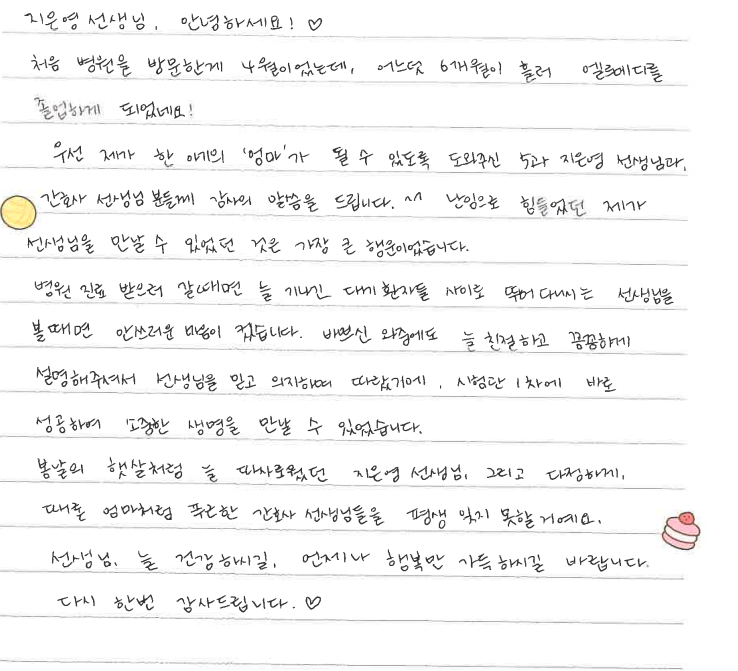 지은영 선생님, 안녕하세요! ♡
처음 병원을 방문한게 4월이었는데, 어느덧 6개월이 흘러 엘르메디를
졸업하게 되었네요!
우선 제가 한 아기의 '엄마'가 될 수 있도록 도와주신 5과 지은영 선생님과,
간호사 선생님분들께 감사의 말씀을 드립니다. ^^ 난임으로 힘들었던 제가
선생님을 만날 수 있었던 것은 가장 큰 행운이었습니다.
병원 진료 받으러 갈때면 늘 기나긴 대기환자들 사이로 뛰어다니시는 선생님을
볼때면 안쓰러운 마음이 컸습니다. 바쁘신 와중에도 늘 친절하고 꼼꼼하게
설명해주셔서 선생님을 믿고 의지하며 따랐기에, 시험관 1차에 바로
성공하여 소중한 생명을 만날 수 있었습니다.
봄날의 햇살처럼 늘 따사로웠던 지은영 선생님, 그리고 다정하게,
때론 엄마처럼 푸근한 간호사 선생님들을 평생 잊지 못할거예요.
선생님, 늘 건강하시길, 언제나 행복만 가득하시길 바랍니다.
다시 한번 감사드립니다. ♡